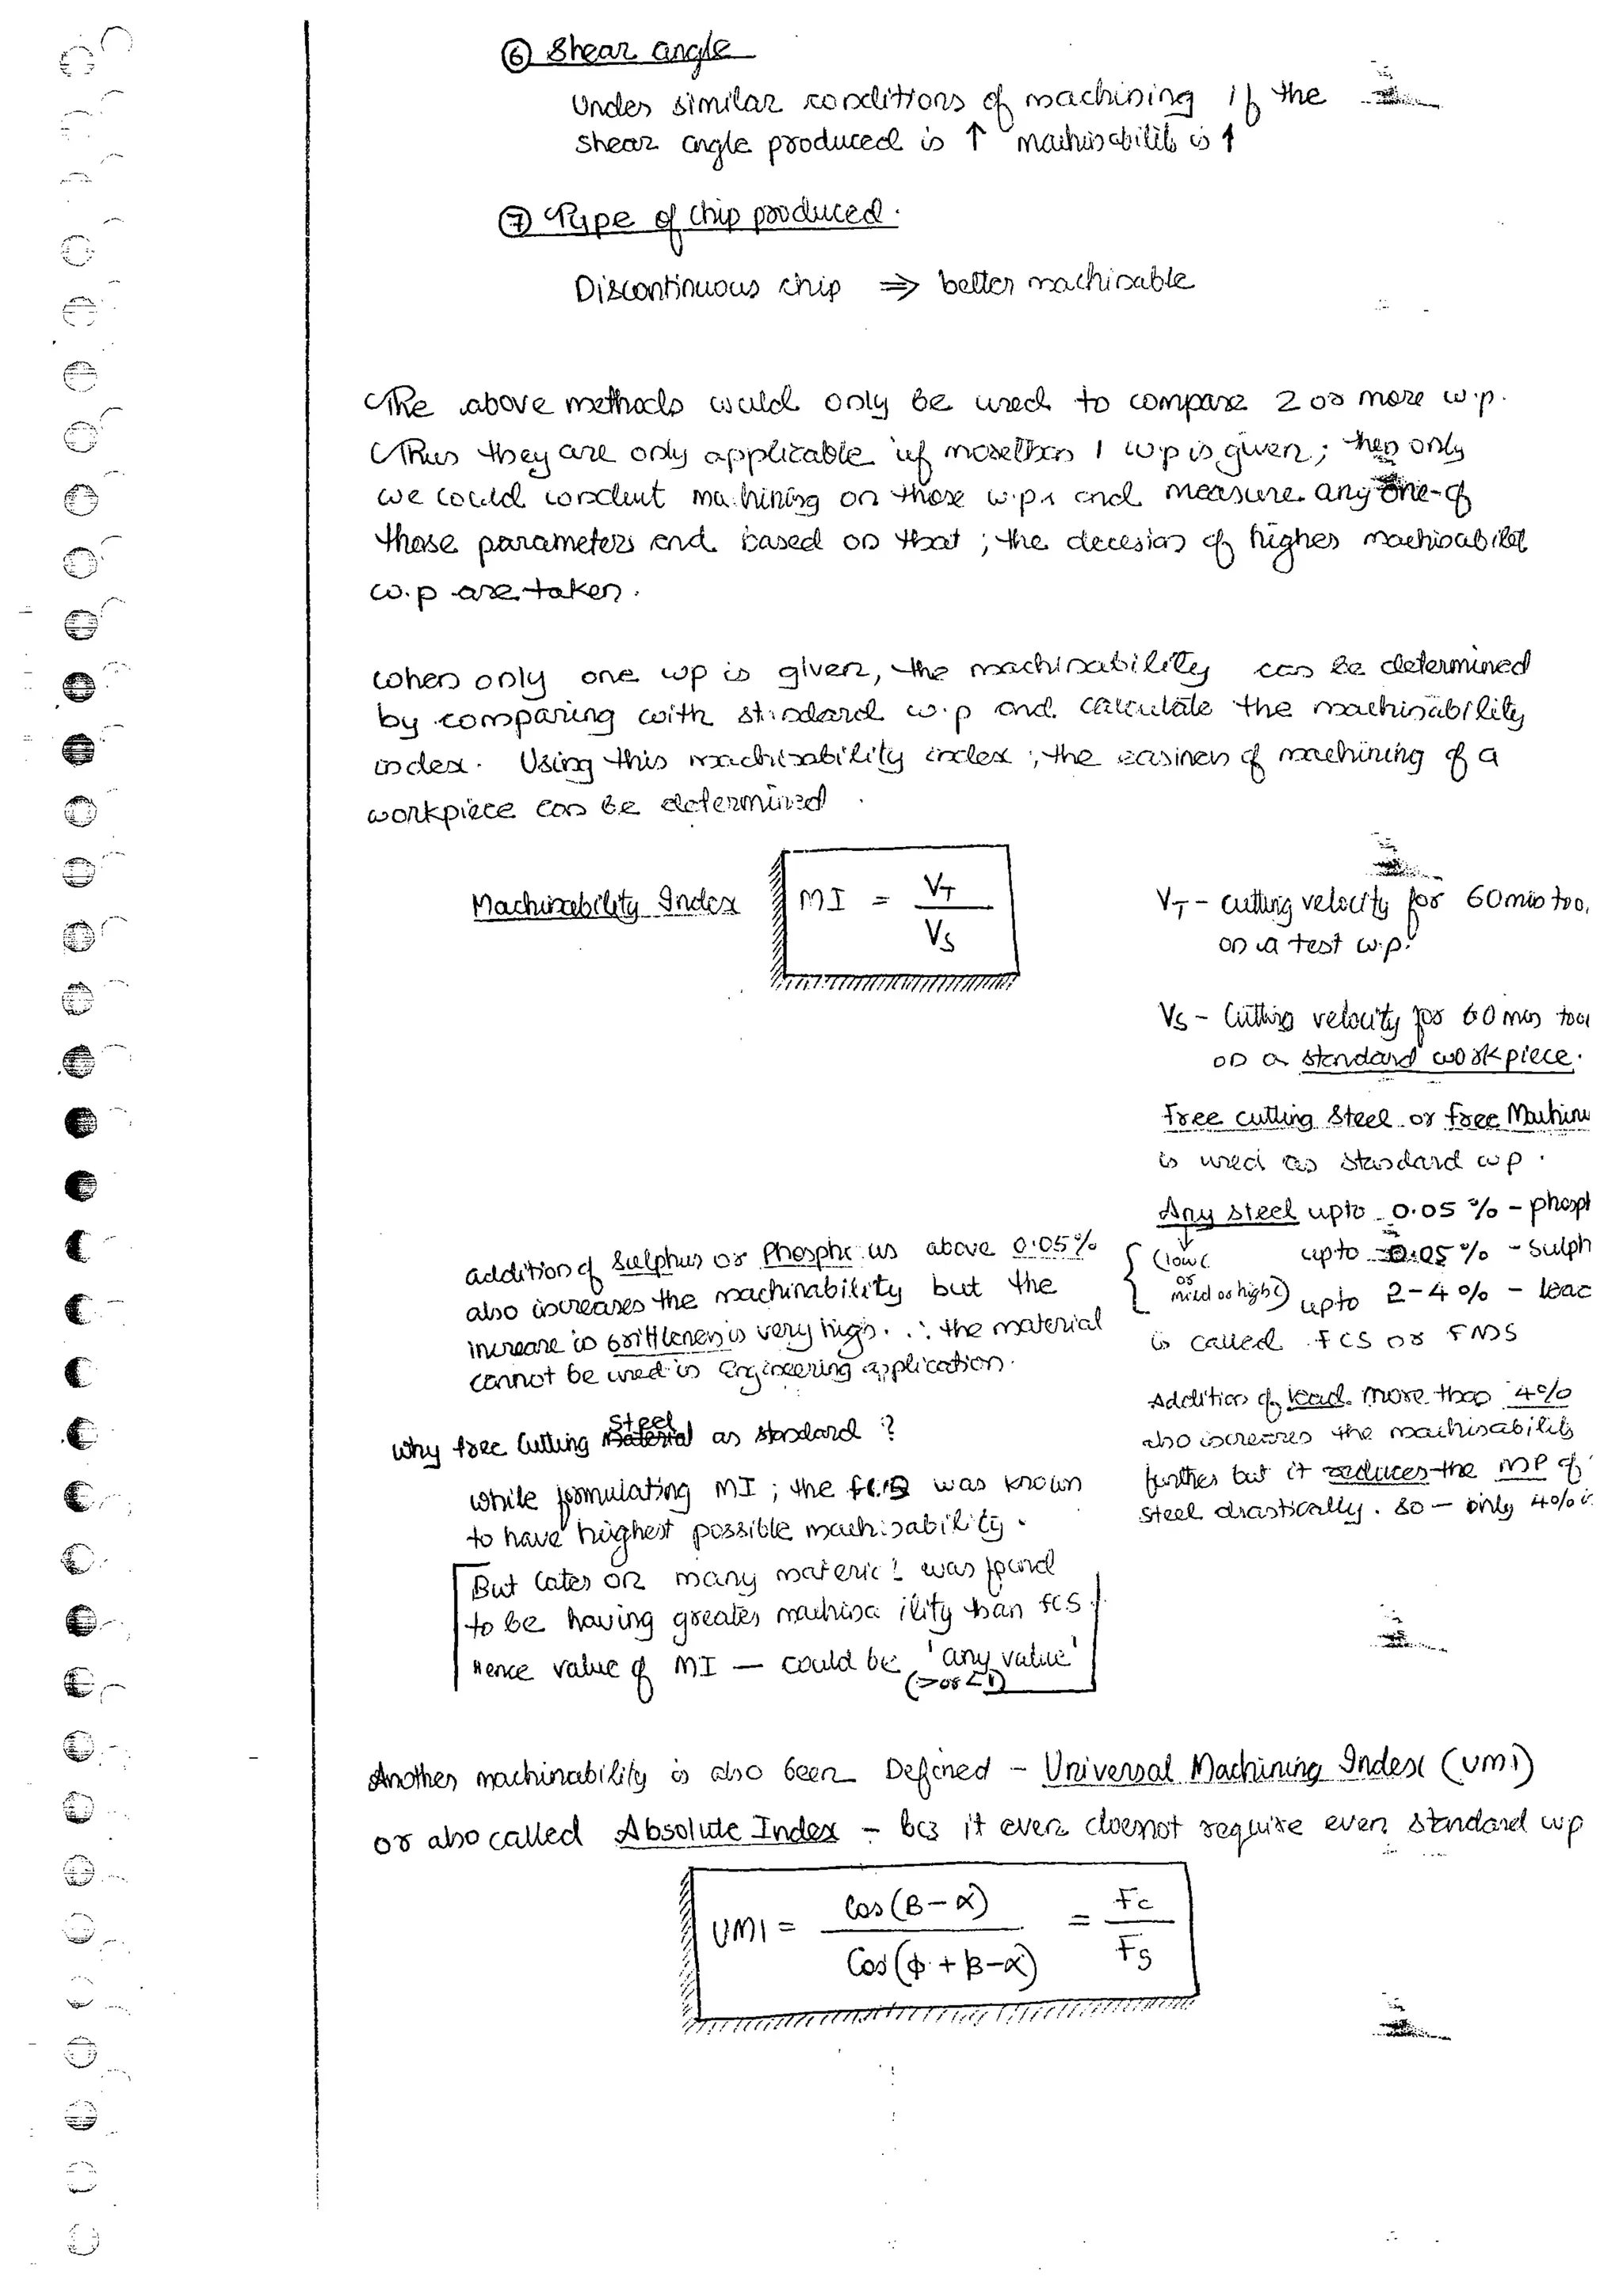 ⑥ Shear angle
Under similar conditions of machining if the
shear angle produced is ↑ machinability is ↑
⑦ Type of chip produced.
Discontinuous chip ⇒ better machinable
The above methods could only be used to compare 2 or more w.p.
Thus they are only applicable if more than 1 wp is given; then only
we could conduct machining on those w.ps and measure any one of
those parameters and based on that; the decesion of higher machinabilit
w.p are taken.
when only one wp is given, the machinability can be determined
by comparing with standard w.p and calculate the machinability
index. Using this machinability index; the easiness of machining of a
workpiece can be determined.
Machinability Index MI = VT / VS
VT - cutting velocity for 60 min too
on a test w.p.
VS - Cutting velocity for 60 min tool
on a standard workpiece.
Free cutting Steel or free Machin
is used as standard wp.
Any steel upto 0.05 % - phosph
(low C or mild or high C) upto 0.05 % - Sulph
upto 2-4 % - leac
is called FCS or FMS
addition of Sulphur or Phosphorus above 0.05%
also increases the machinability but the
increase in brittleness is very high. ∴ the material
cannot be used in Engineering application.
Addition of lead more than 4%
also increases the machinability
further but it reduces the MP of
steel drastically. So - only 4% i
Why free Cutting Steel as standard ?
while formulating MI; the FCS was known
to have highest possible machinability.
But later on many material was found
to be having greater machinability than FCS.
Hence value of MI — could be 'any value'
(> or < 1)
Another machinability is also been Defined - Universal Machining Index (UMI)
or also called Absolute Index - bcz it even doesnot require even standard wp
UMI = Cos(β-α) / Cos(φ+β-α) = Fc / Fs